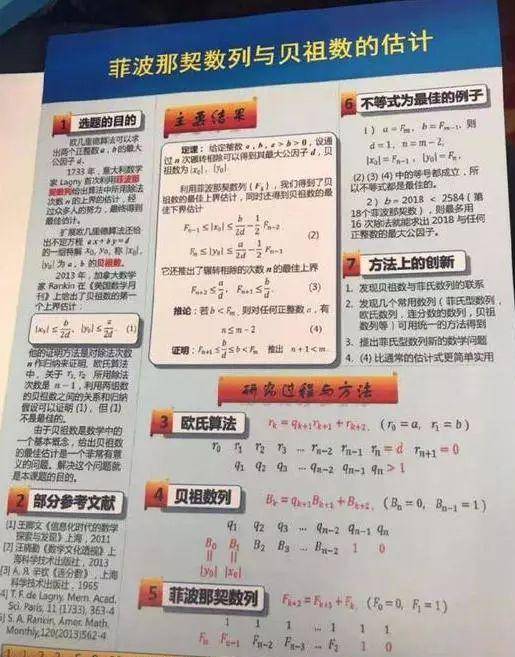 菲波那契数列与贝祖数的估计
1 选题的目的
欧几里德算法可以求
出两个正整数 a，b 的最大
公因子 d。
1733 年，意大利数学
家 Lagny 首次利用菲波那
契数列给出算法中所用除法
次数 n 的上界的估计，经
过众多人的努力，最终得到
最佳估计。
扩展欧几里德算法还给
出不定方程 ax+by=d
的一组特解 x₀, y₀, 称 |x₀|,
|y₀| 为 a, b 的贝祖数。
2013 年，加拿大数学
家 Rankin 在《美国数学月
刊》上给出了贝祖数的第一
个上界估计：
|x₀| ≤ b/2d, |y₀| ≤ a/2d. (1)
他的证明方法是对除法次数
n 作归纳来证明, 欧几里德算法
中，关于 r₁, r₂ 所用除法
次数是 n − 1，利用两组数
的贝祖数之间的关系和归纳
假设可以证明 (1)，但 (1)
不是最佳的。
由于贝祖数是数学中的
一个基本概念，给出贝祖数
的最佳估计是一个非常有意
义的问题。解决这个问题就
是本课题的目的。
2 部分参考文献
[1] 王卿文《信息化时代的数学
探索与发现》上海，2011
[2] 汪晓勤《数学文化透视》上
海科学技术出版社，2013
[3] A. Я. 辛钦《连分数》，上海
科学技术出版社，1965
4] T. F. de Lagny. Mem. Acad.
Sci. Paris, 11 (1733), 363-4
5] S. A. Rankin, Amer. Math.
Monthly,120(2013)562-4
主要结果
定理：给定整数 a, b, a > b > 0，设通
过 n 次辗转相除可以得到其最大公因子 d，贝
祖数为 |x₀|，|y₀|。
利用菲波那契数列 {Fₖ}，我们得到了贝
祖数的最佳上界估计，同时还得到贝祖数的最
佳下界估计
Fₙ₋₁ ≤ |x₀| ≤ b/2d − 1/2 Fₙ₋₂
(2)
Fₙ ≤ |y₀| ≤ a/2d − 1/2 Fₙ₋₁
它还推出了辗转相除的次数 n 的最佳上界
Fₙ₊₂ ≤ a/d, Fₙ₊₁ ≤ b/d. (3)
推论：若 b < Fₘ，则对任何正整数 a，有
n ≤ m − 2 (4)
证明：Fₙ₊₁ ≤ b/d ≤ b < Fₘ 推出 n + 1 < m
6 不等式为最佳的例子
1) a = Fₘ, b = Fₘ₋₁, 则
d = 1, n = m − 2,
|x₀| = Fₙ₋₁, |y₀| = Fₙ,
(2) (3) (4) 中的等号都成立，所
以不等式都是最佳的。
2) b = 2018 < 2584（第
18个菲波那契数），则最多用
16 次除法就能求出 2018 与任何
正整数的最大公因子。
7 方法上的创新
1. 发现贝祖数与菲氏数列的联系
2. 发现几个常用数列（菲氏型数列，
欧氏数列，连分数的数列，贝祖
数列等）可用统一的方法得到
3. 提出菲氏型数列新的数学问题
4. (4) 比通常的估计式更简单实用
研究过程与方法
3 欧氏算法 rₖ = qₖ₊₁rₖ₊₁ + rₖ₊₂, (r₀ = a, r₁ = b)
r₀ r₁ r₂ r₃ … rₙ₋₂ rₙ₋₁ rₙ = d rₙ₊₁ = 0
q₁ q₂ q₃ … qₙ₋₂ qₙ₋₁ qₙ > 1
4 贝祖数列 Bₖ = qₖ₊₁Bₖ₊₁ + Bₖ₊₂, (Bₙ = 0, Bₙ₋₁ = 1)
q₁ q₂ q₃ … qₙ₋₂ qₙ₋₁ qₙ
B₀ B₁ B₂ B₃ … Bₙ₋₂ 1 0
|| ||
|y₀| |x₀|
5 菲波那契数列 Fₖ₊₂ = Fₖ₊₁ + Fₖ, (F₀ = 0, F₁ = 1)
1 1 1 … 1 1 1
Fₙ Fₙ₋₁ Fₙ₋₂ Fₙ₋₃ … F₂ 1 0